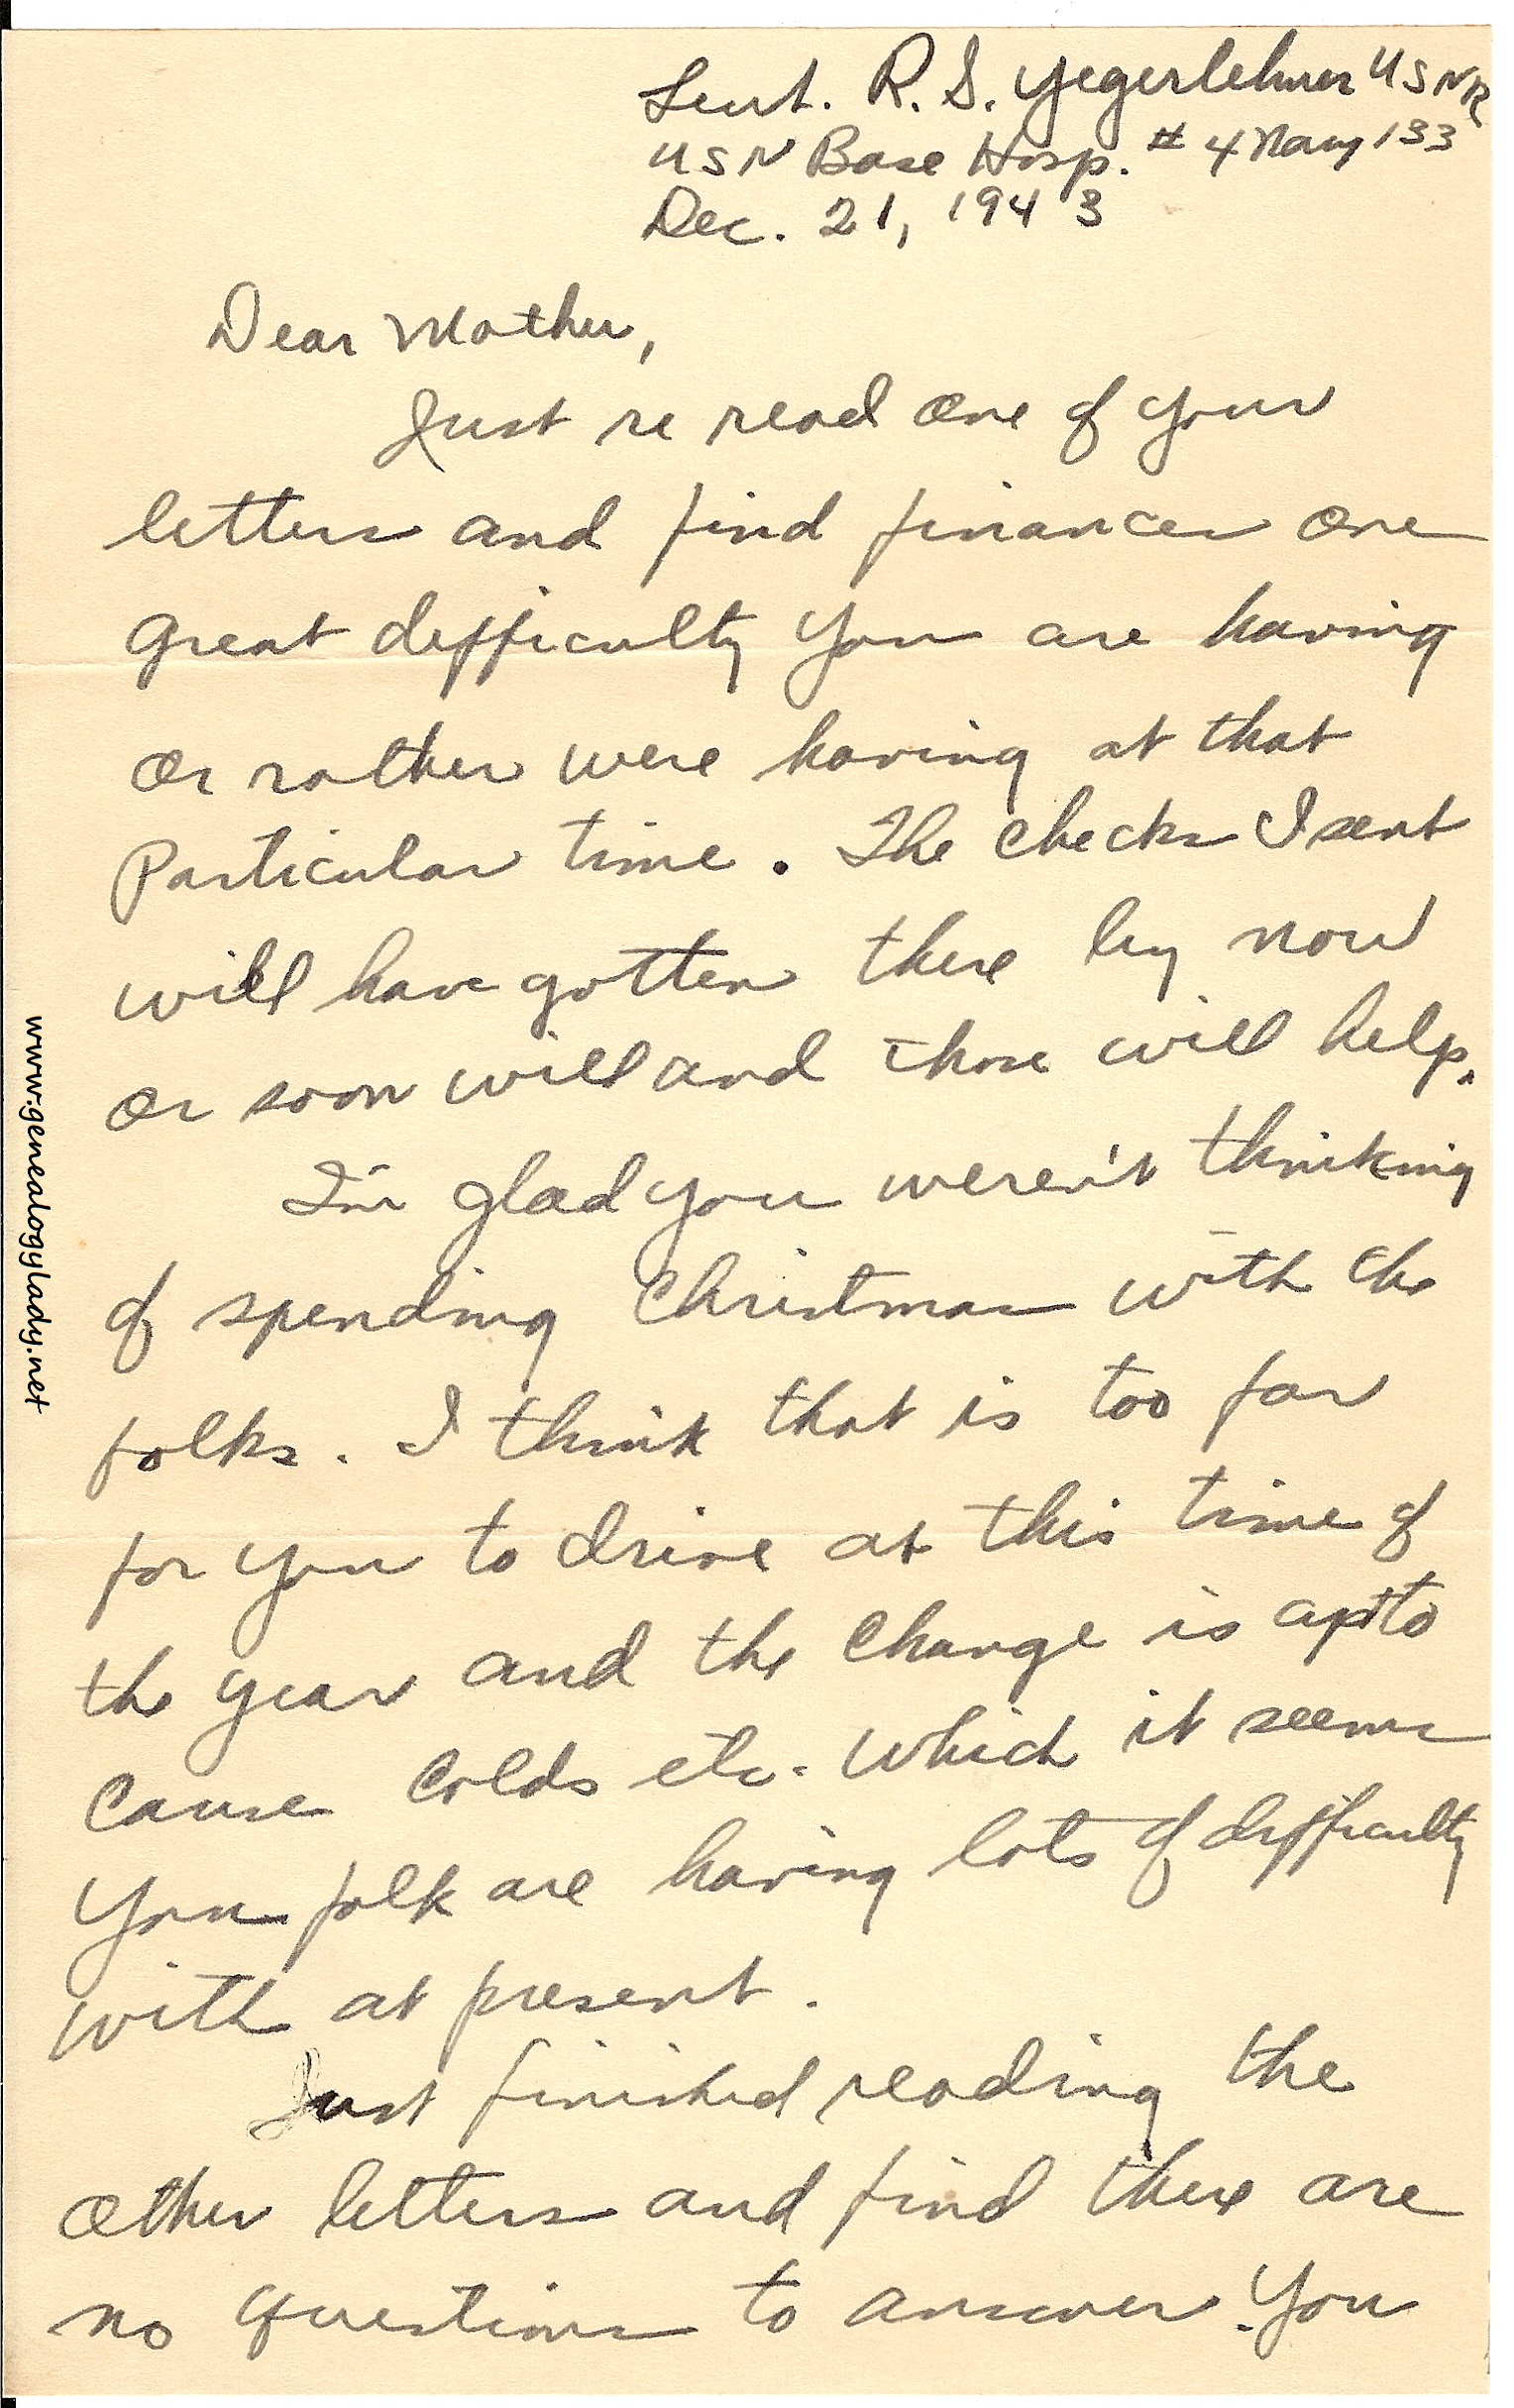 Lieut. R. S. Yegerlehner USNR
USN Base Hosp. # 4 Navy 133
Dec. 21, 1943
Dear Mother,
Just re read one of your
letters and find finances one
great difficulty you are having
or rather were having at that
particular time. The checks I sent
will have gotten there by now
or soon will and those will help.
I'm glad you weren't thinking
of spending Christmas with the
folks. I think that is too far
for you to drive at this time of
the year and the change is apt to
cause colds etc. which it seems
you folk are having lots of difficulty
with at present.
Just finished reading the
other letters and find there are
no questions to answer. You
www.genealogylady.net